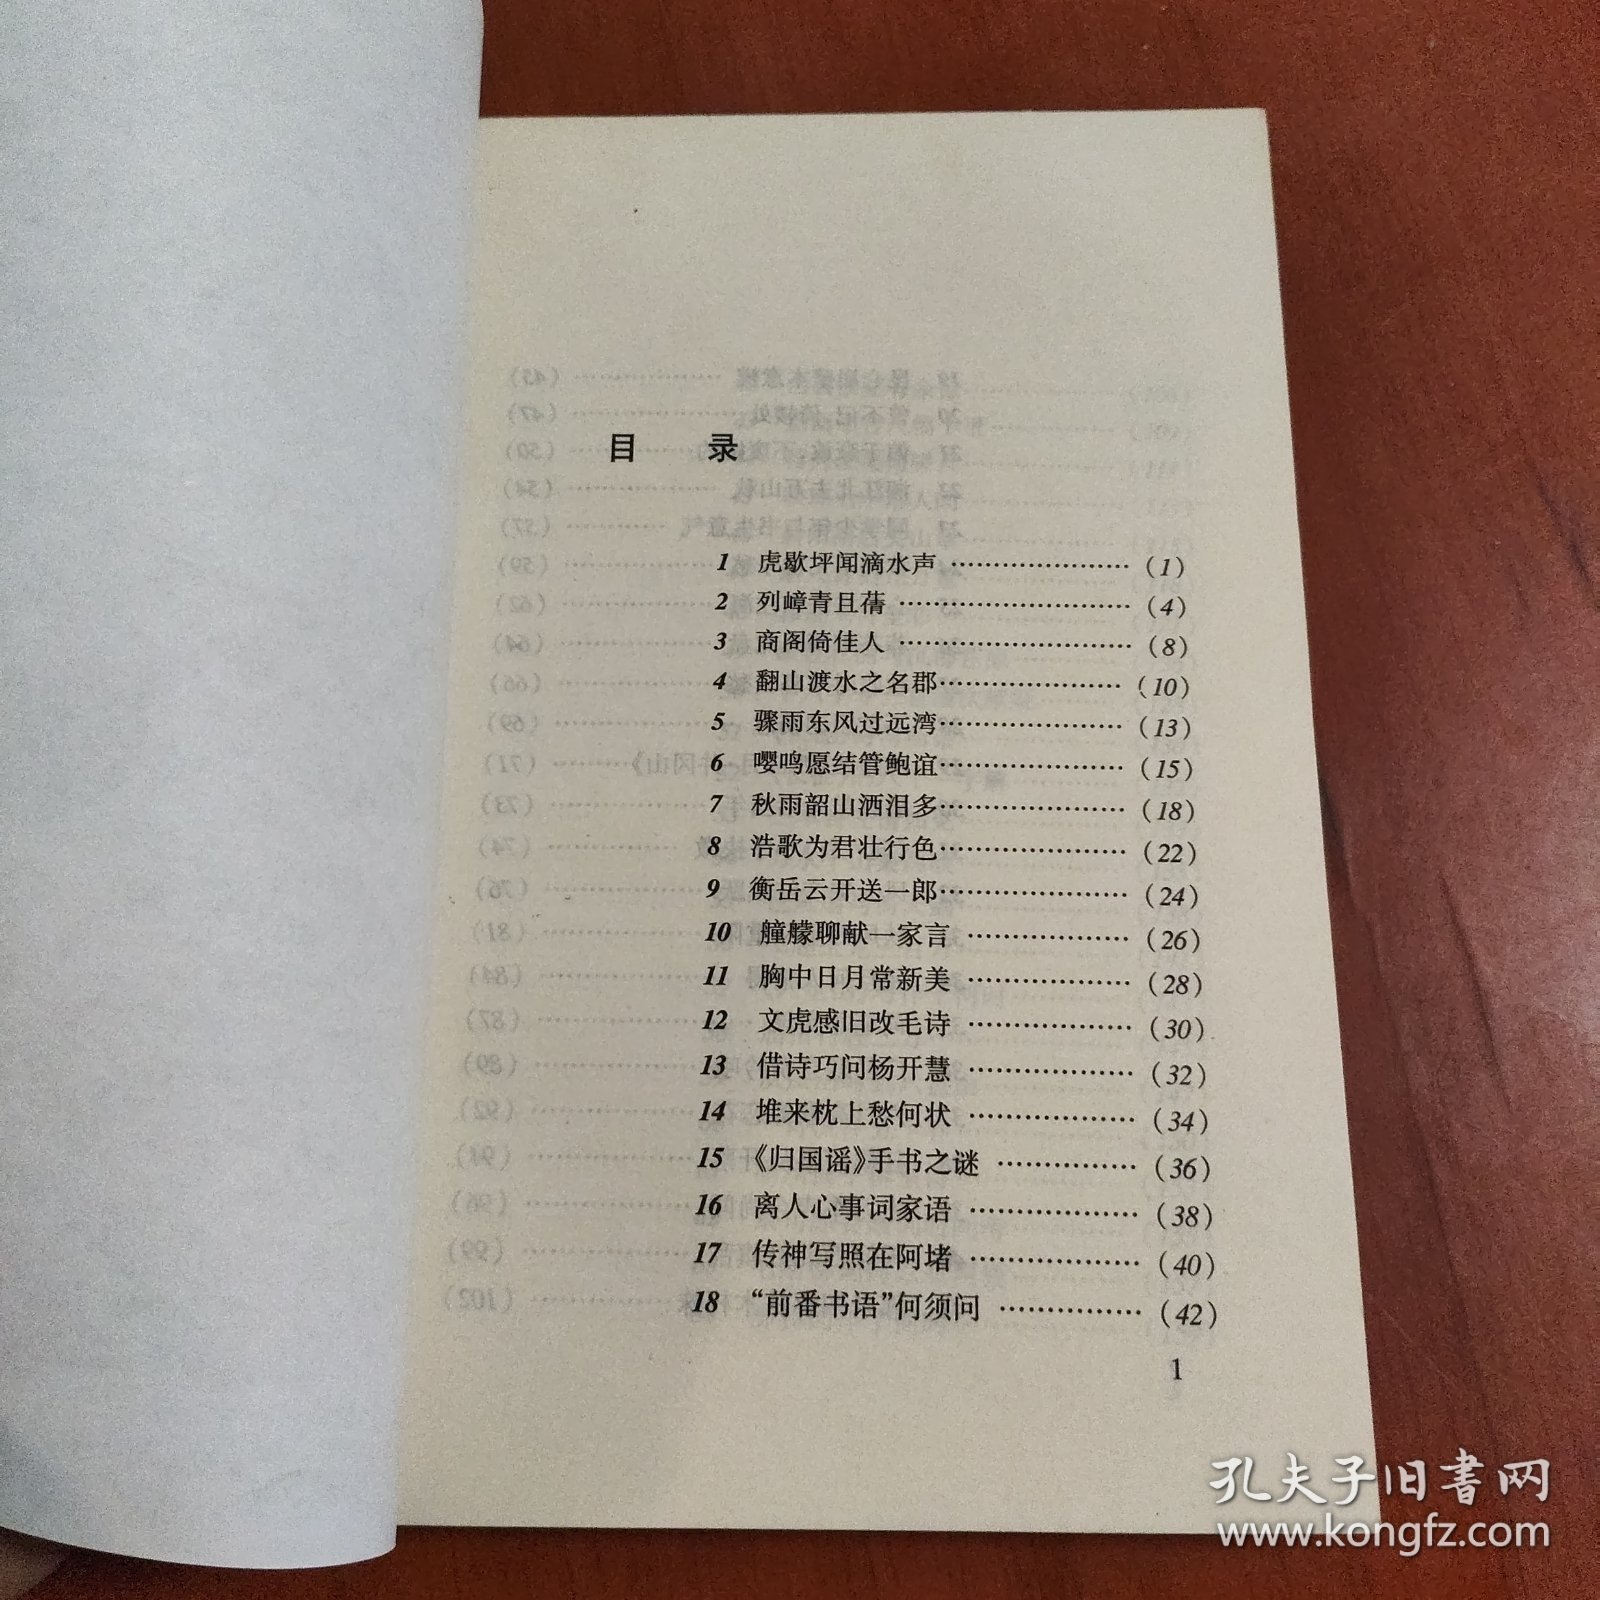 目 录
1 虎歇坪闻滴水声 …………………（1）
2 列嶂青且蒨 ………………………（4）
3 商阁倚佳人 ………………………（8）
4 翻山渡水之名郡…………………（10）
5 骤雨东风过远湾…………………（13）
6 嘤鸣愿结管鲍谊…………………（15）
7 秋雨韶山洒泪多…………………（18）
8 浩歌为君壮行色…………………（22）
9 衡岳云开送一郎…………………（24）
10 艟艨聊献一家言 ………………（26）
11 胸中日月常新美 ………………（28）
12 文虎感旧改毛诗 ………………（30）
13 借诗巧问杨开慧 ………………（32）
14 堆来枕上愁何状 ………………（34）
15 《归国谣》手书之谜 ……………（36）
16 离人心事词家语 ………………（38）
17 传神写照在阿堵 ………………（40）
18 “前番书语”何须问 ……………（42）
1
孔夫子旧书网
www.kongfz.com